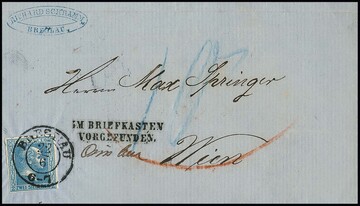 RICHARD
BRESLAU
Herrn Max Springer
IM BRIEFKASTEN
VORGEFUNDEN.
Wien
BRESLAU
6-7